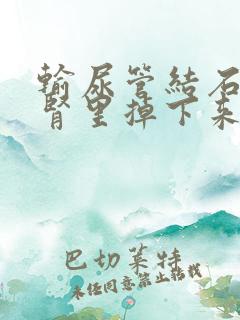 輸尿管結石
腎里掉下来
巴切莱特
未经同意禁止转载